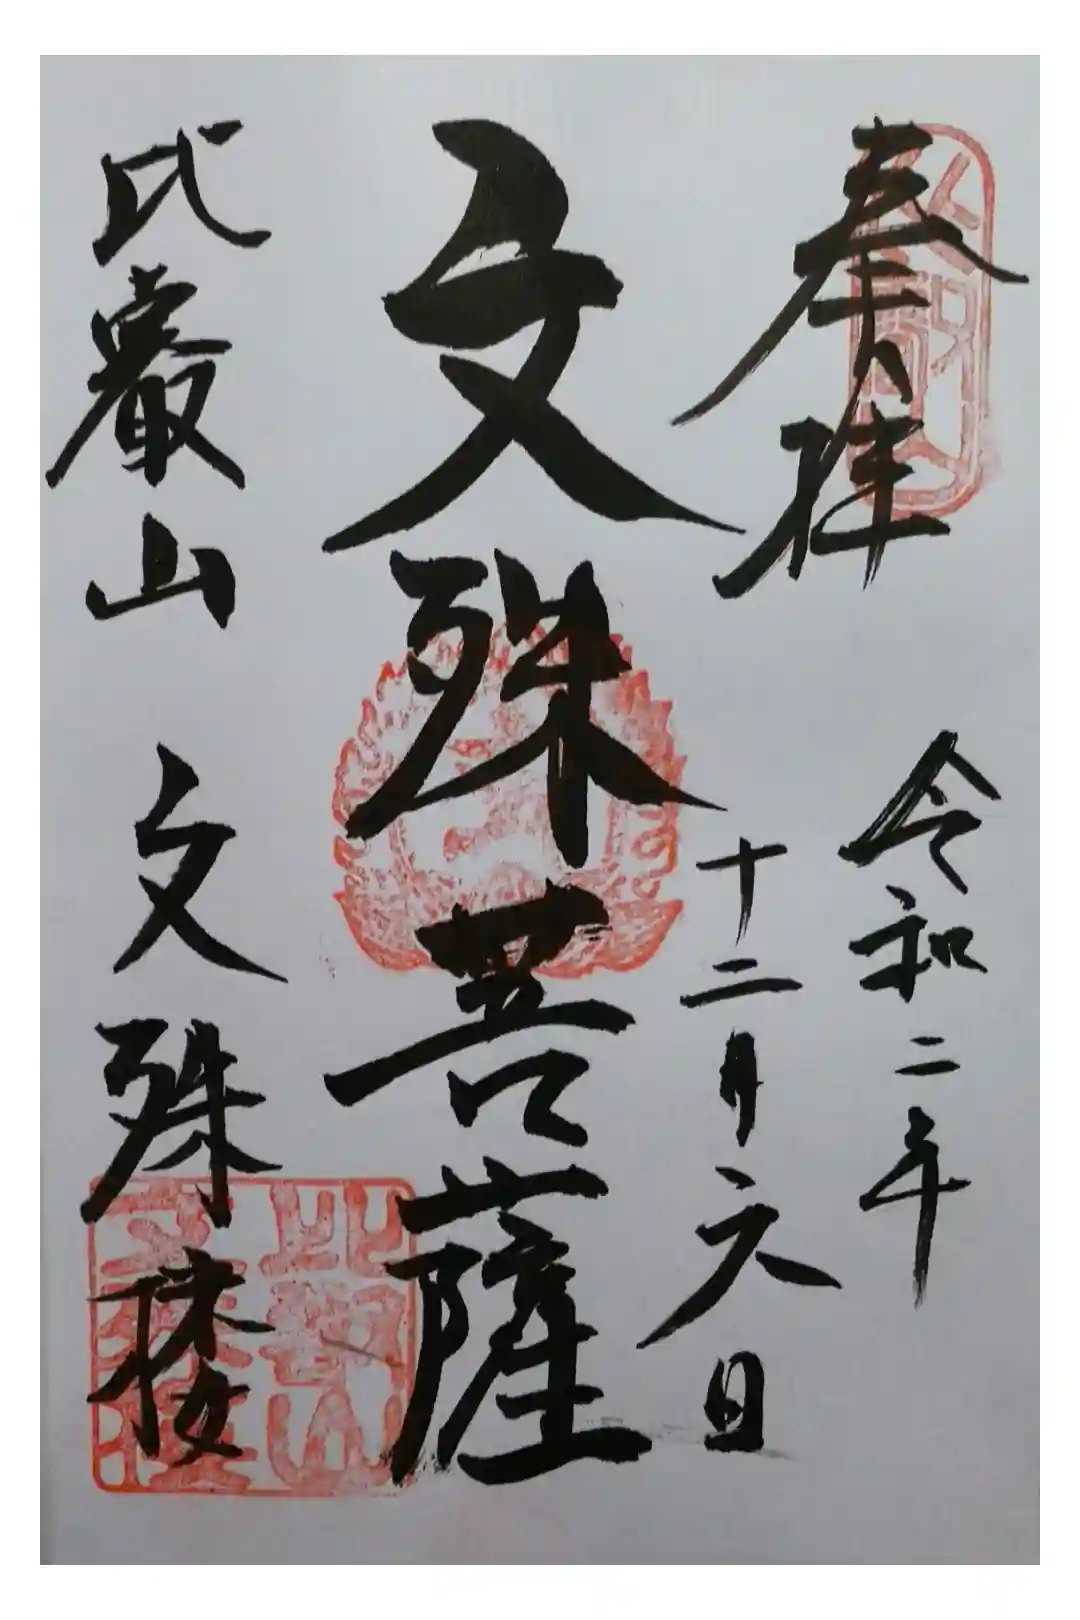 奉拝
令和二年
十二月六日
文殊菩薩
比叡山 文殊楼
比叡山
文殊楼